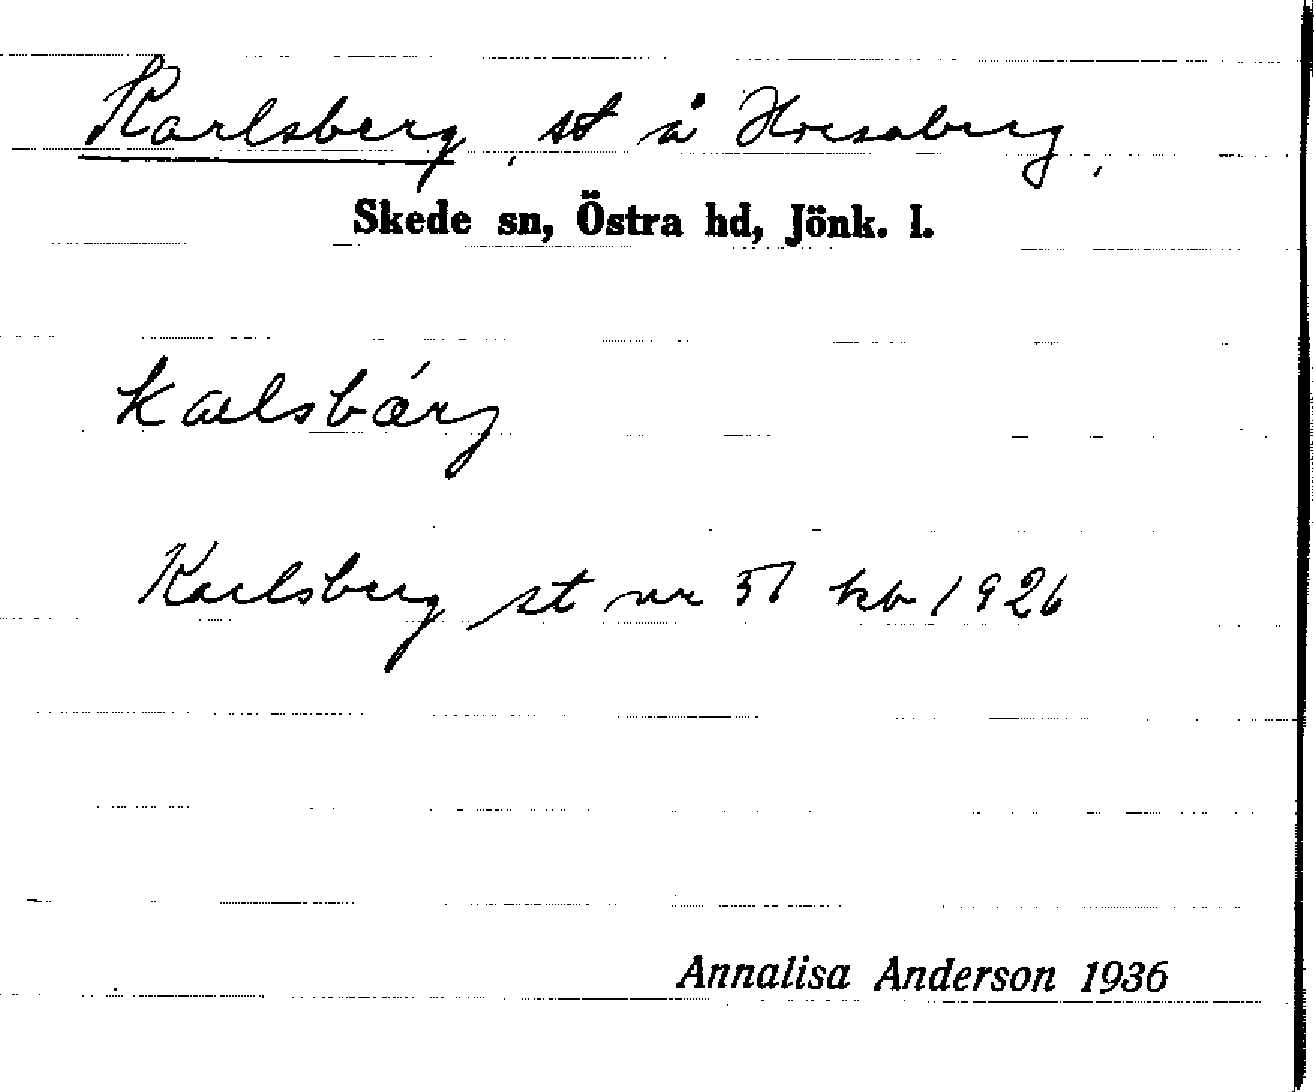 Karlsberg, st å Hresaberg,
Skede sn, Östra hd, Jönk. l.
kalsbárj
Karlsberg st nr 57 kb 1926
Annalisa Anderson 1936